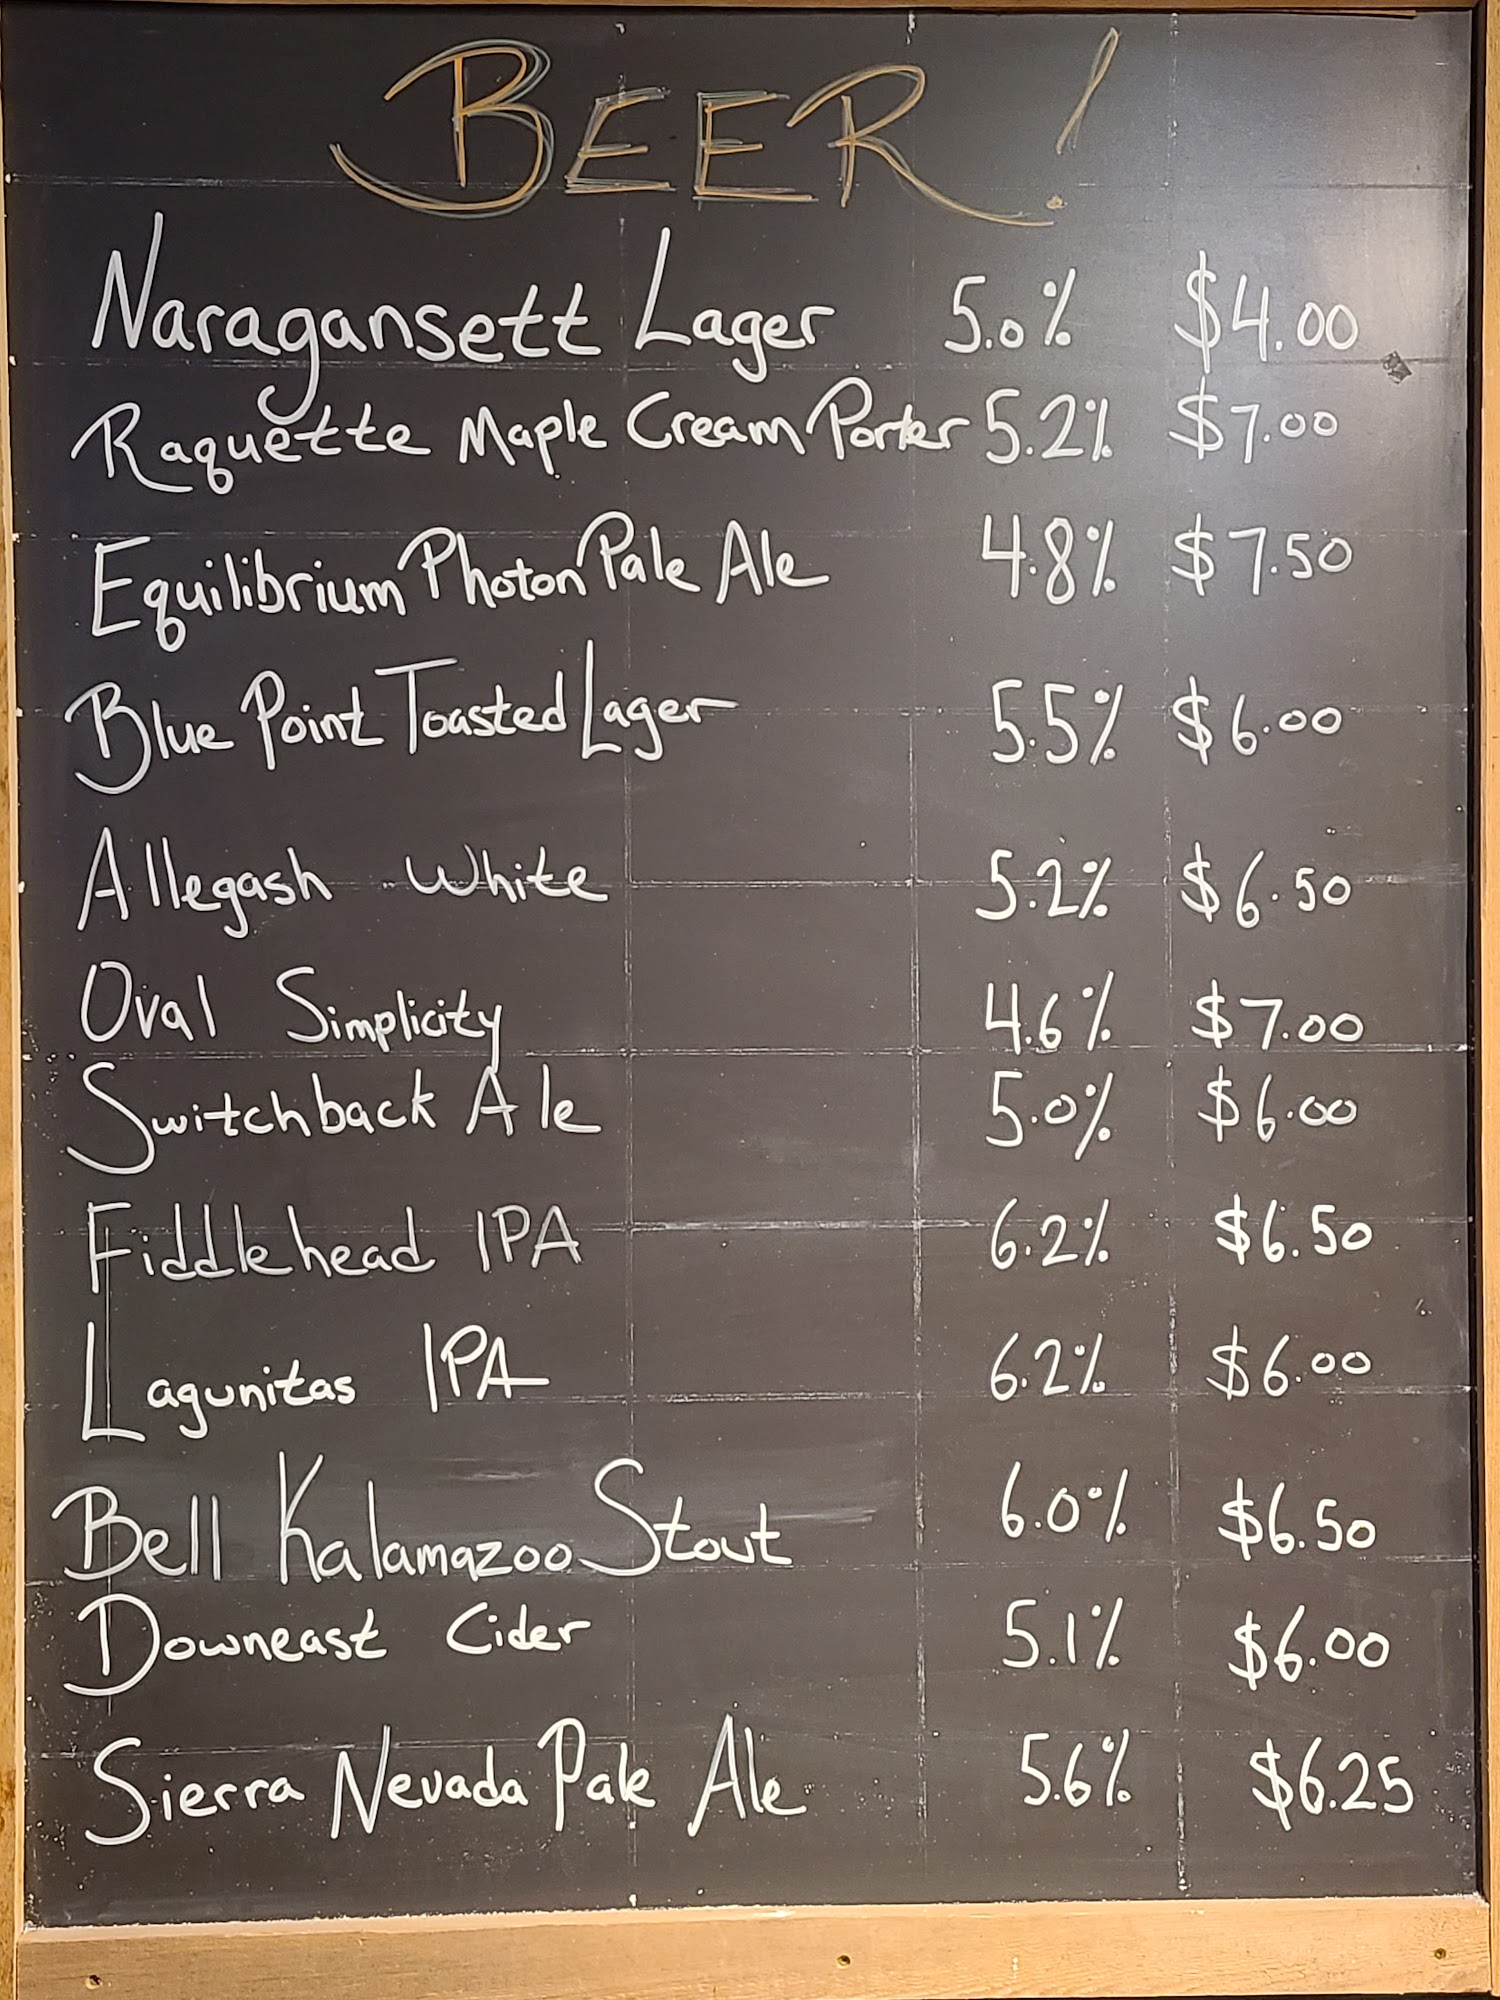 BEER!
Naragansett Lager 5.0% $4.00
Raquette Maple Cream Porter 5.2% $7.00
Equilibrium Photon Pale Ale 4.8% $7.50
Blue Point Toasted Lager 5.5% $6.00
Allegash White 5.2% $6.50
Oval Simplicity 4.6% $7.00
Switchback Ale 5.0% $6.00
Fiddlehead IPA 6.2% $6.50
Lagunitas IPA 6.2% $6.00
Bell Kalamazoo Stout 6.0% $6.50
Downeast Cider 5.1% $6.00
Sierra Nevada Pale Ale 5.6% $6.25